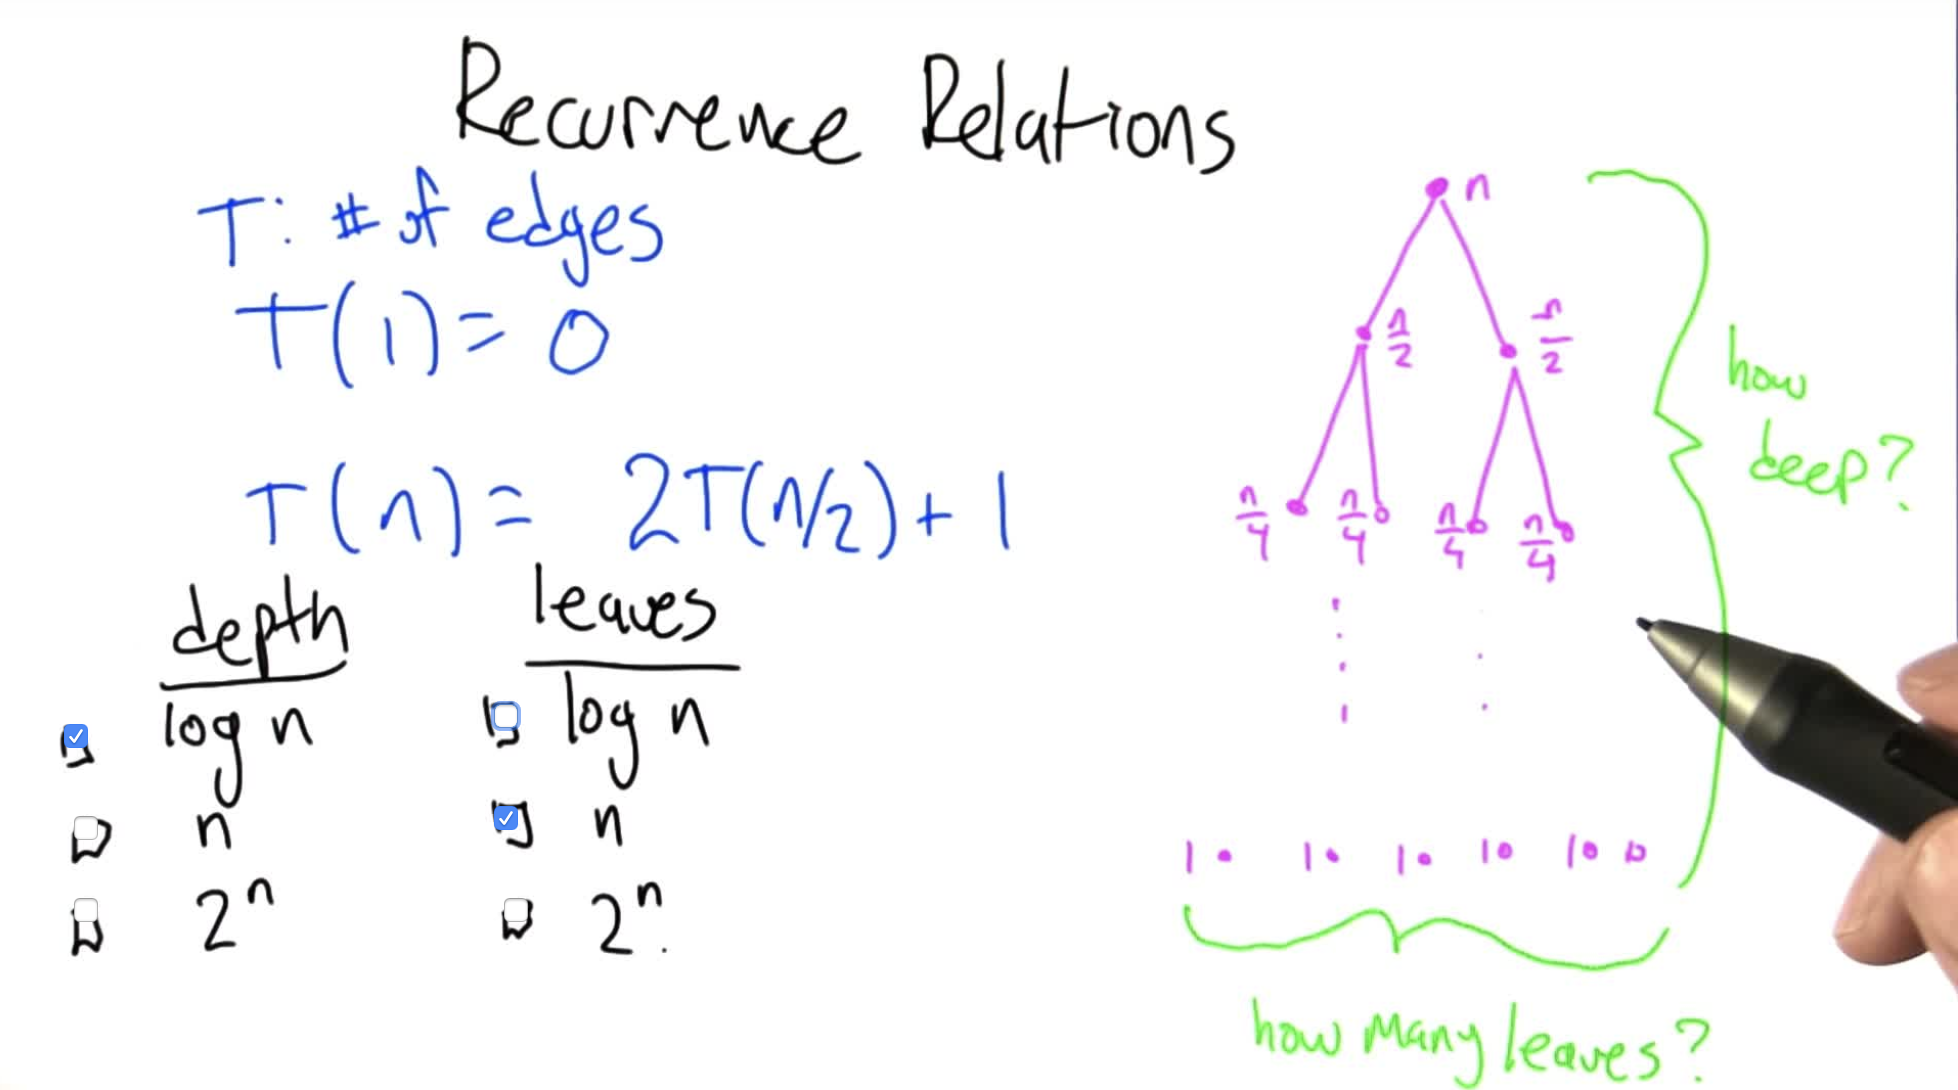 Recurrence Relations
T: # of edges
T(1) = 0
T(n) = 2T(n/2) + 1
depth
log n
n
2^n
leaves
log n
n
2^n.
n
n/2 n/2
n/4 n/4 n/4 n/4
1 1 1 1 1
how
deep?
how many leaves?